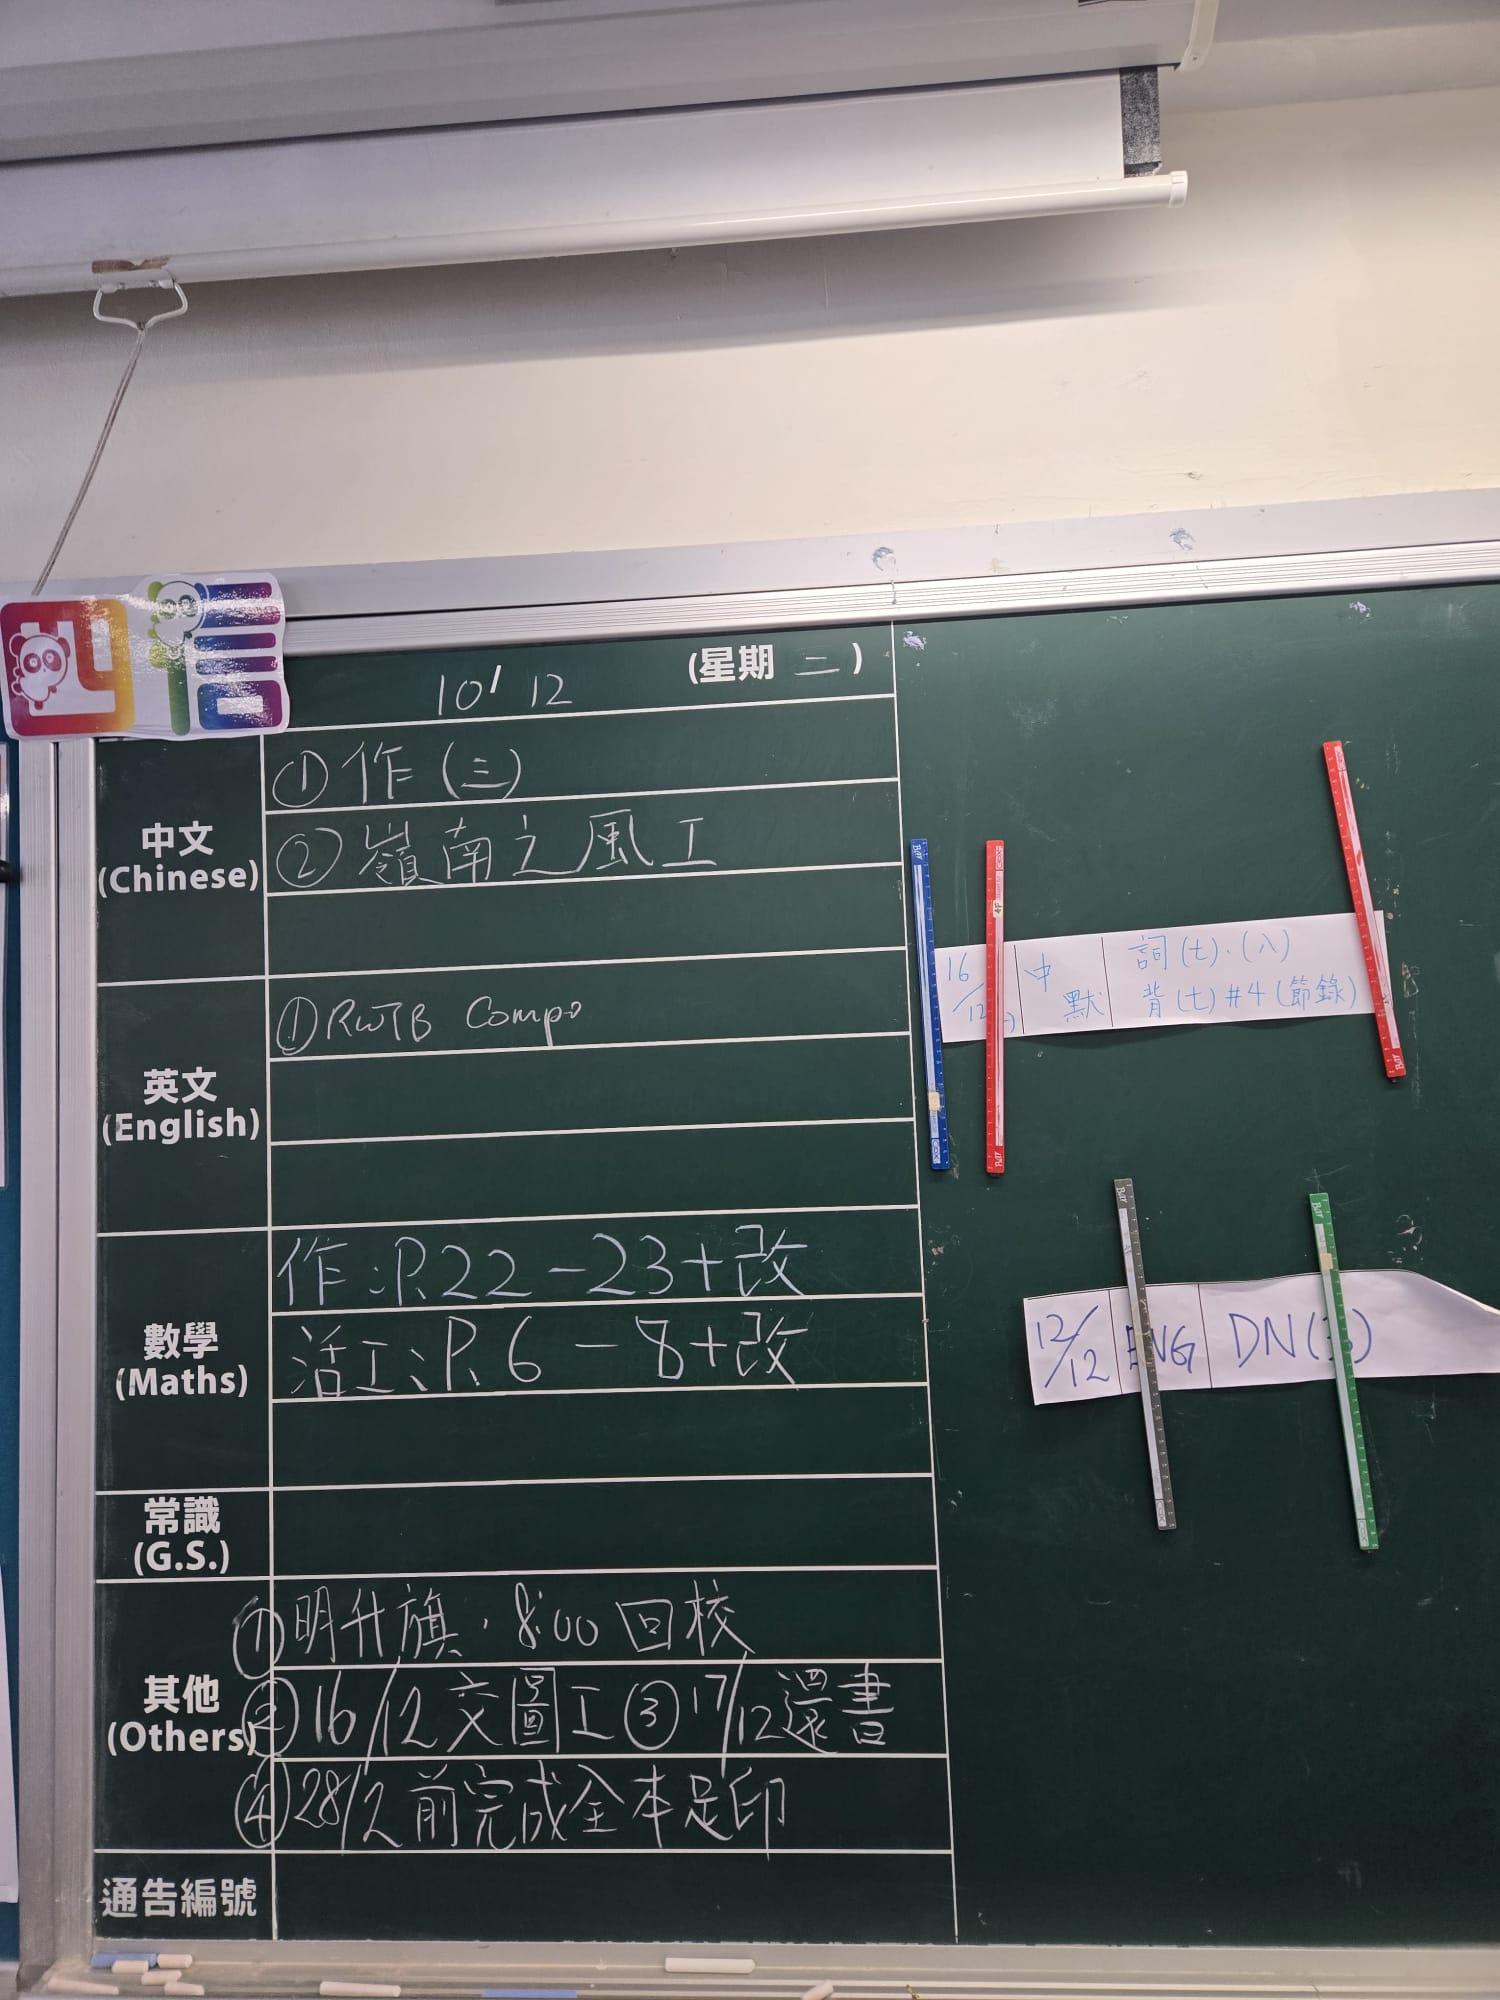 四信
10/12 (星期 二)
中文
(Chinese)
①作(三)
②嶺南之風工
英文
(English)
①RWTB Compo
數學
(Maths)
作:P.22-23+改
活工:P.6-8+改
常識
(G.S.)
其他
(Others)
①明升旗,8:00回校
②16/12交圖工③17/12還書
④28/2前完成全本足印
通告編號
16/12 中默 詞(七).(八)
背(七)#4(節錄)
12/12 ENG DN